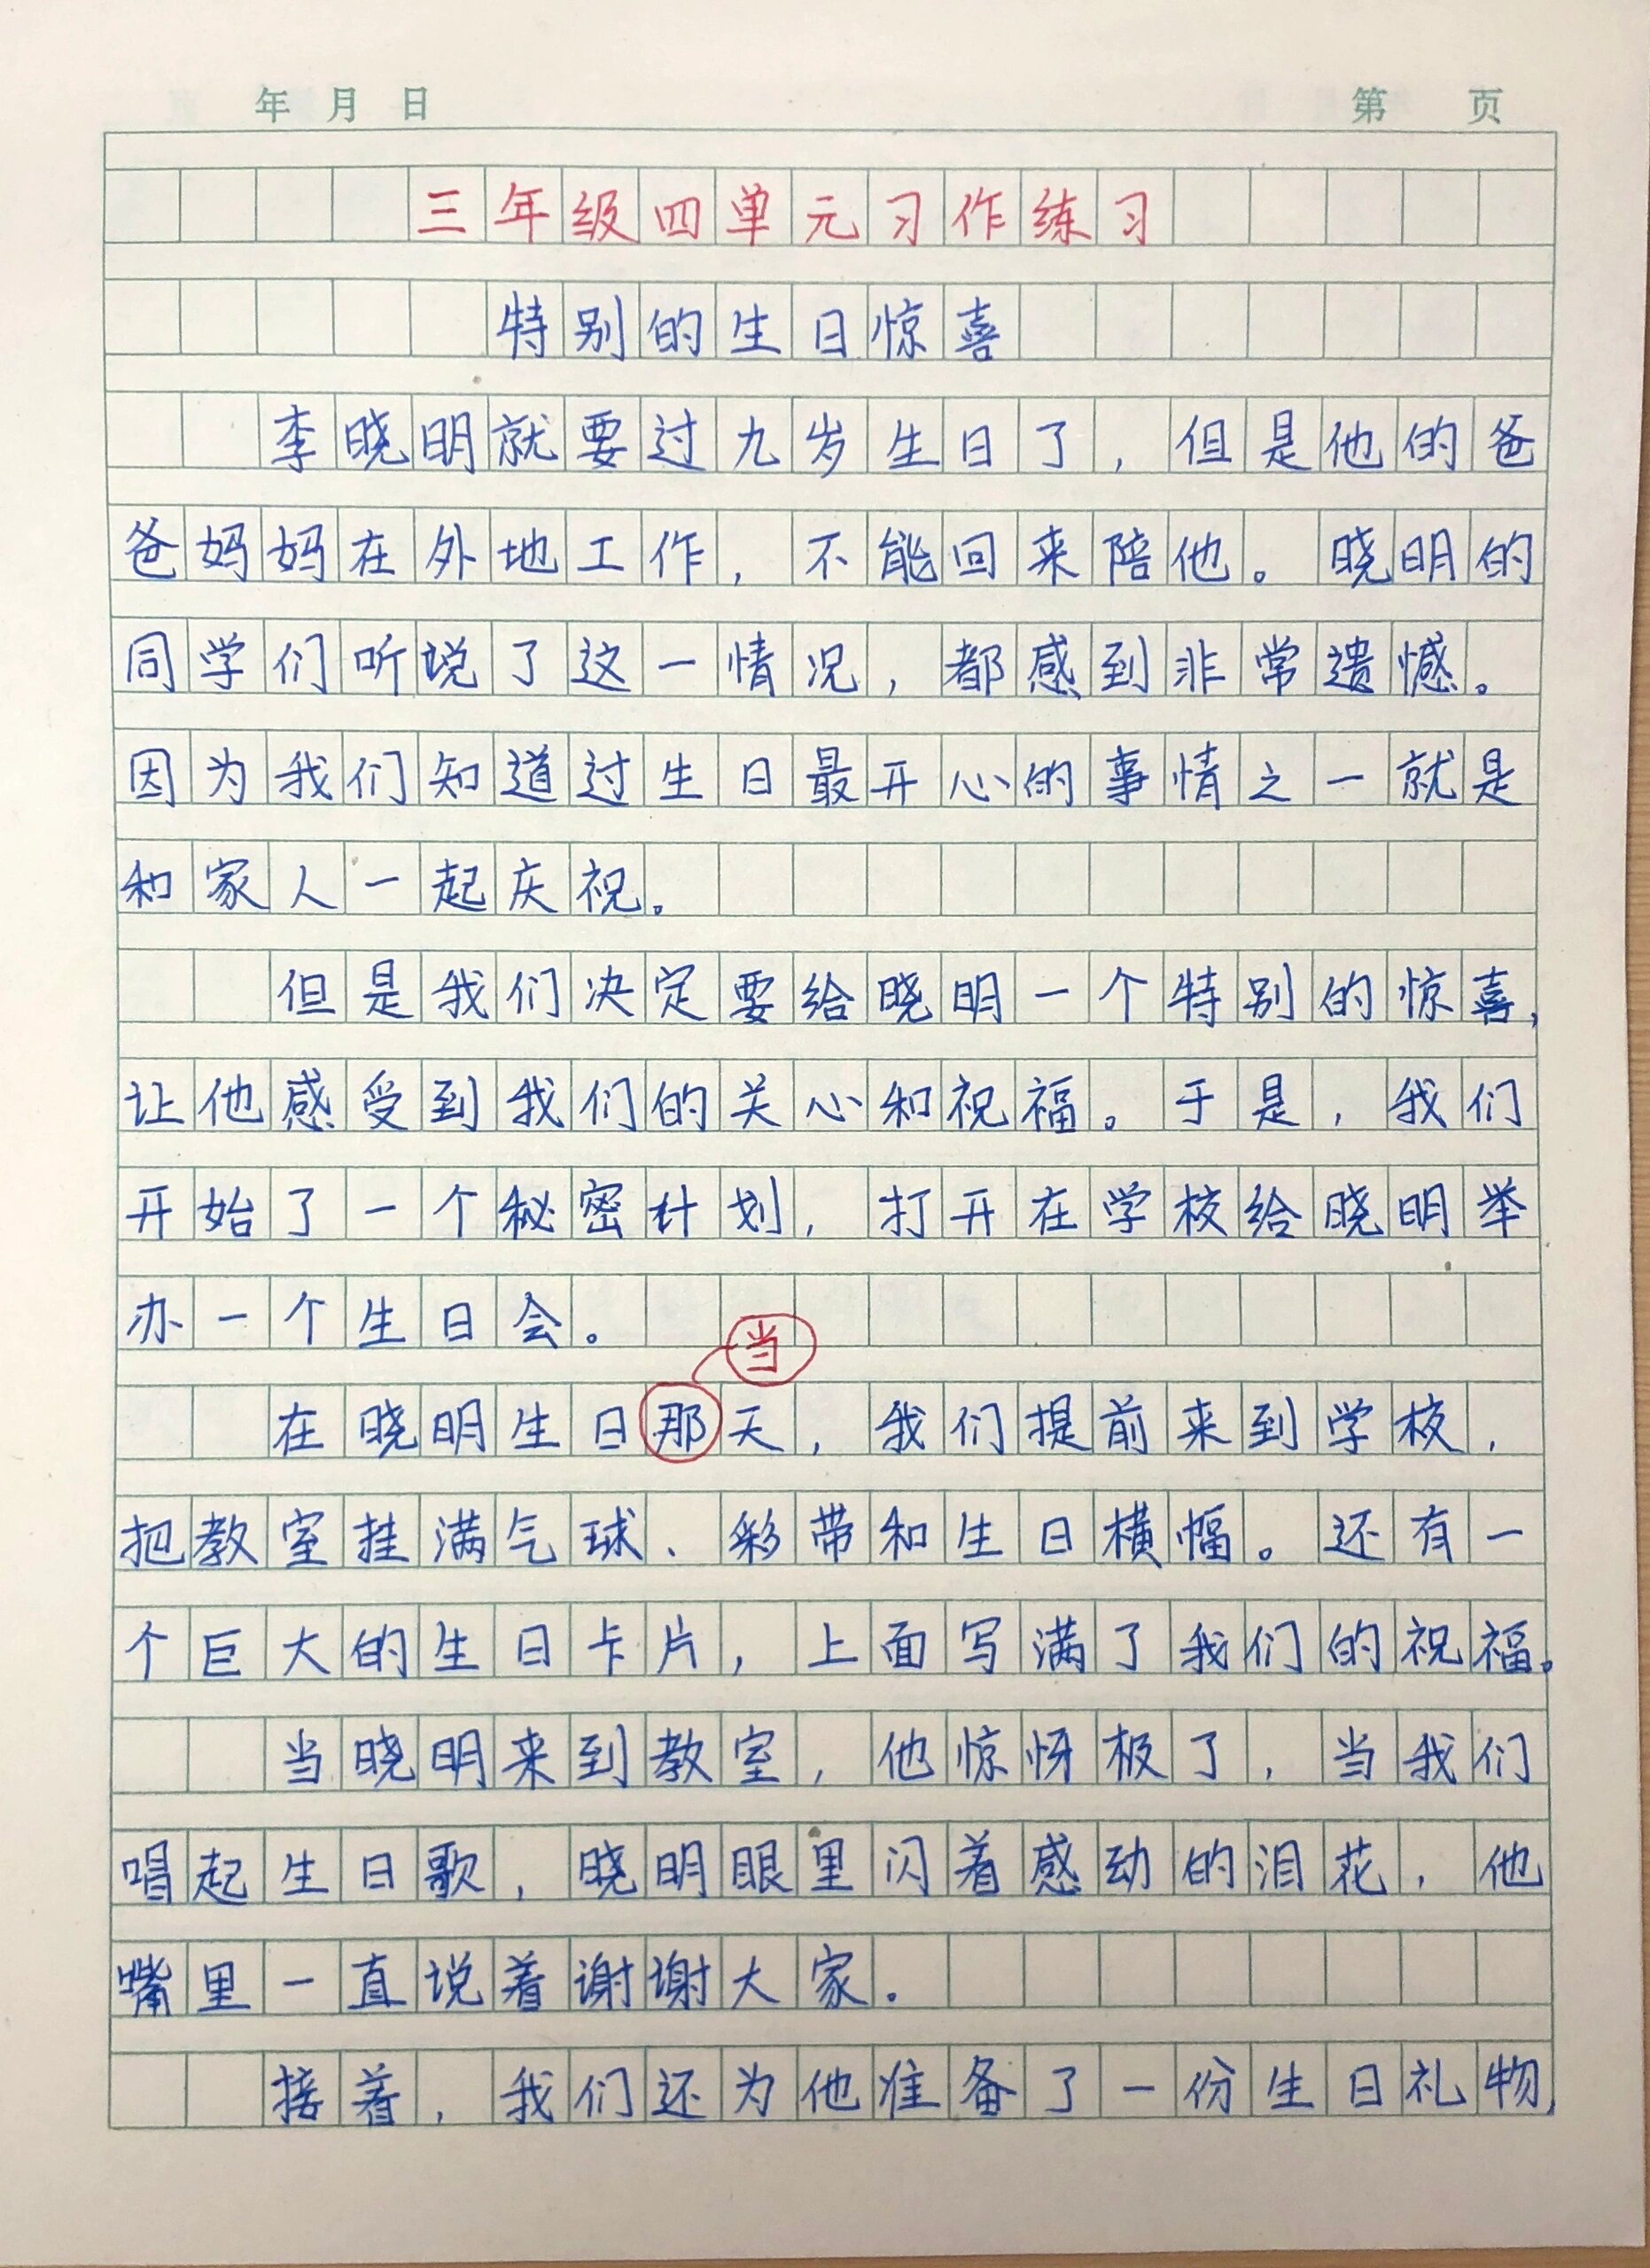 年 月 日 第 页
三年级四单元习作练习
特别的生日惊喜
李晓明就要过九岁生日了，但是他的爸
爸妈妈在外地工作，不能回来陪他。晓明的
同学们听说了这一情况，都感到非常遗憾。
因为我们知道过生日最开心的事情之一就是
和家人一起庆祝。
但是我们决定要给晓明一个特别的惊喜，
让他感受到我们的关心和祝福。于是，我们
开始了一个秘密计划，打开在学校给晓明举
办一个生日会。
当
在晓明生日那天，我们提前来到学校，
把教室挂满气球、彩带和生日横幅。还有一
个巨大的生日卡片，上面写满了我们的祝福。
当晓明来到教室，他惊讶极了，当我们
唱起生日歌，晓明眼里闪着感动的泪花，他
嘴里一直说着谢谢大家。
接着，我们还为他准备了一份生日礼物，